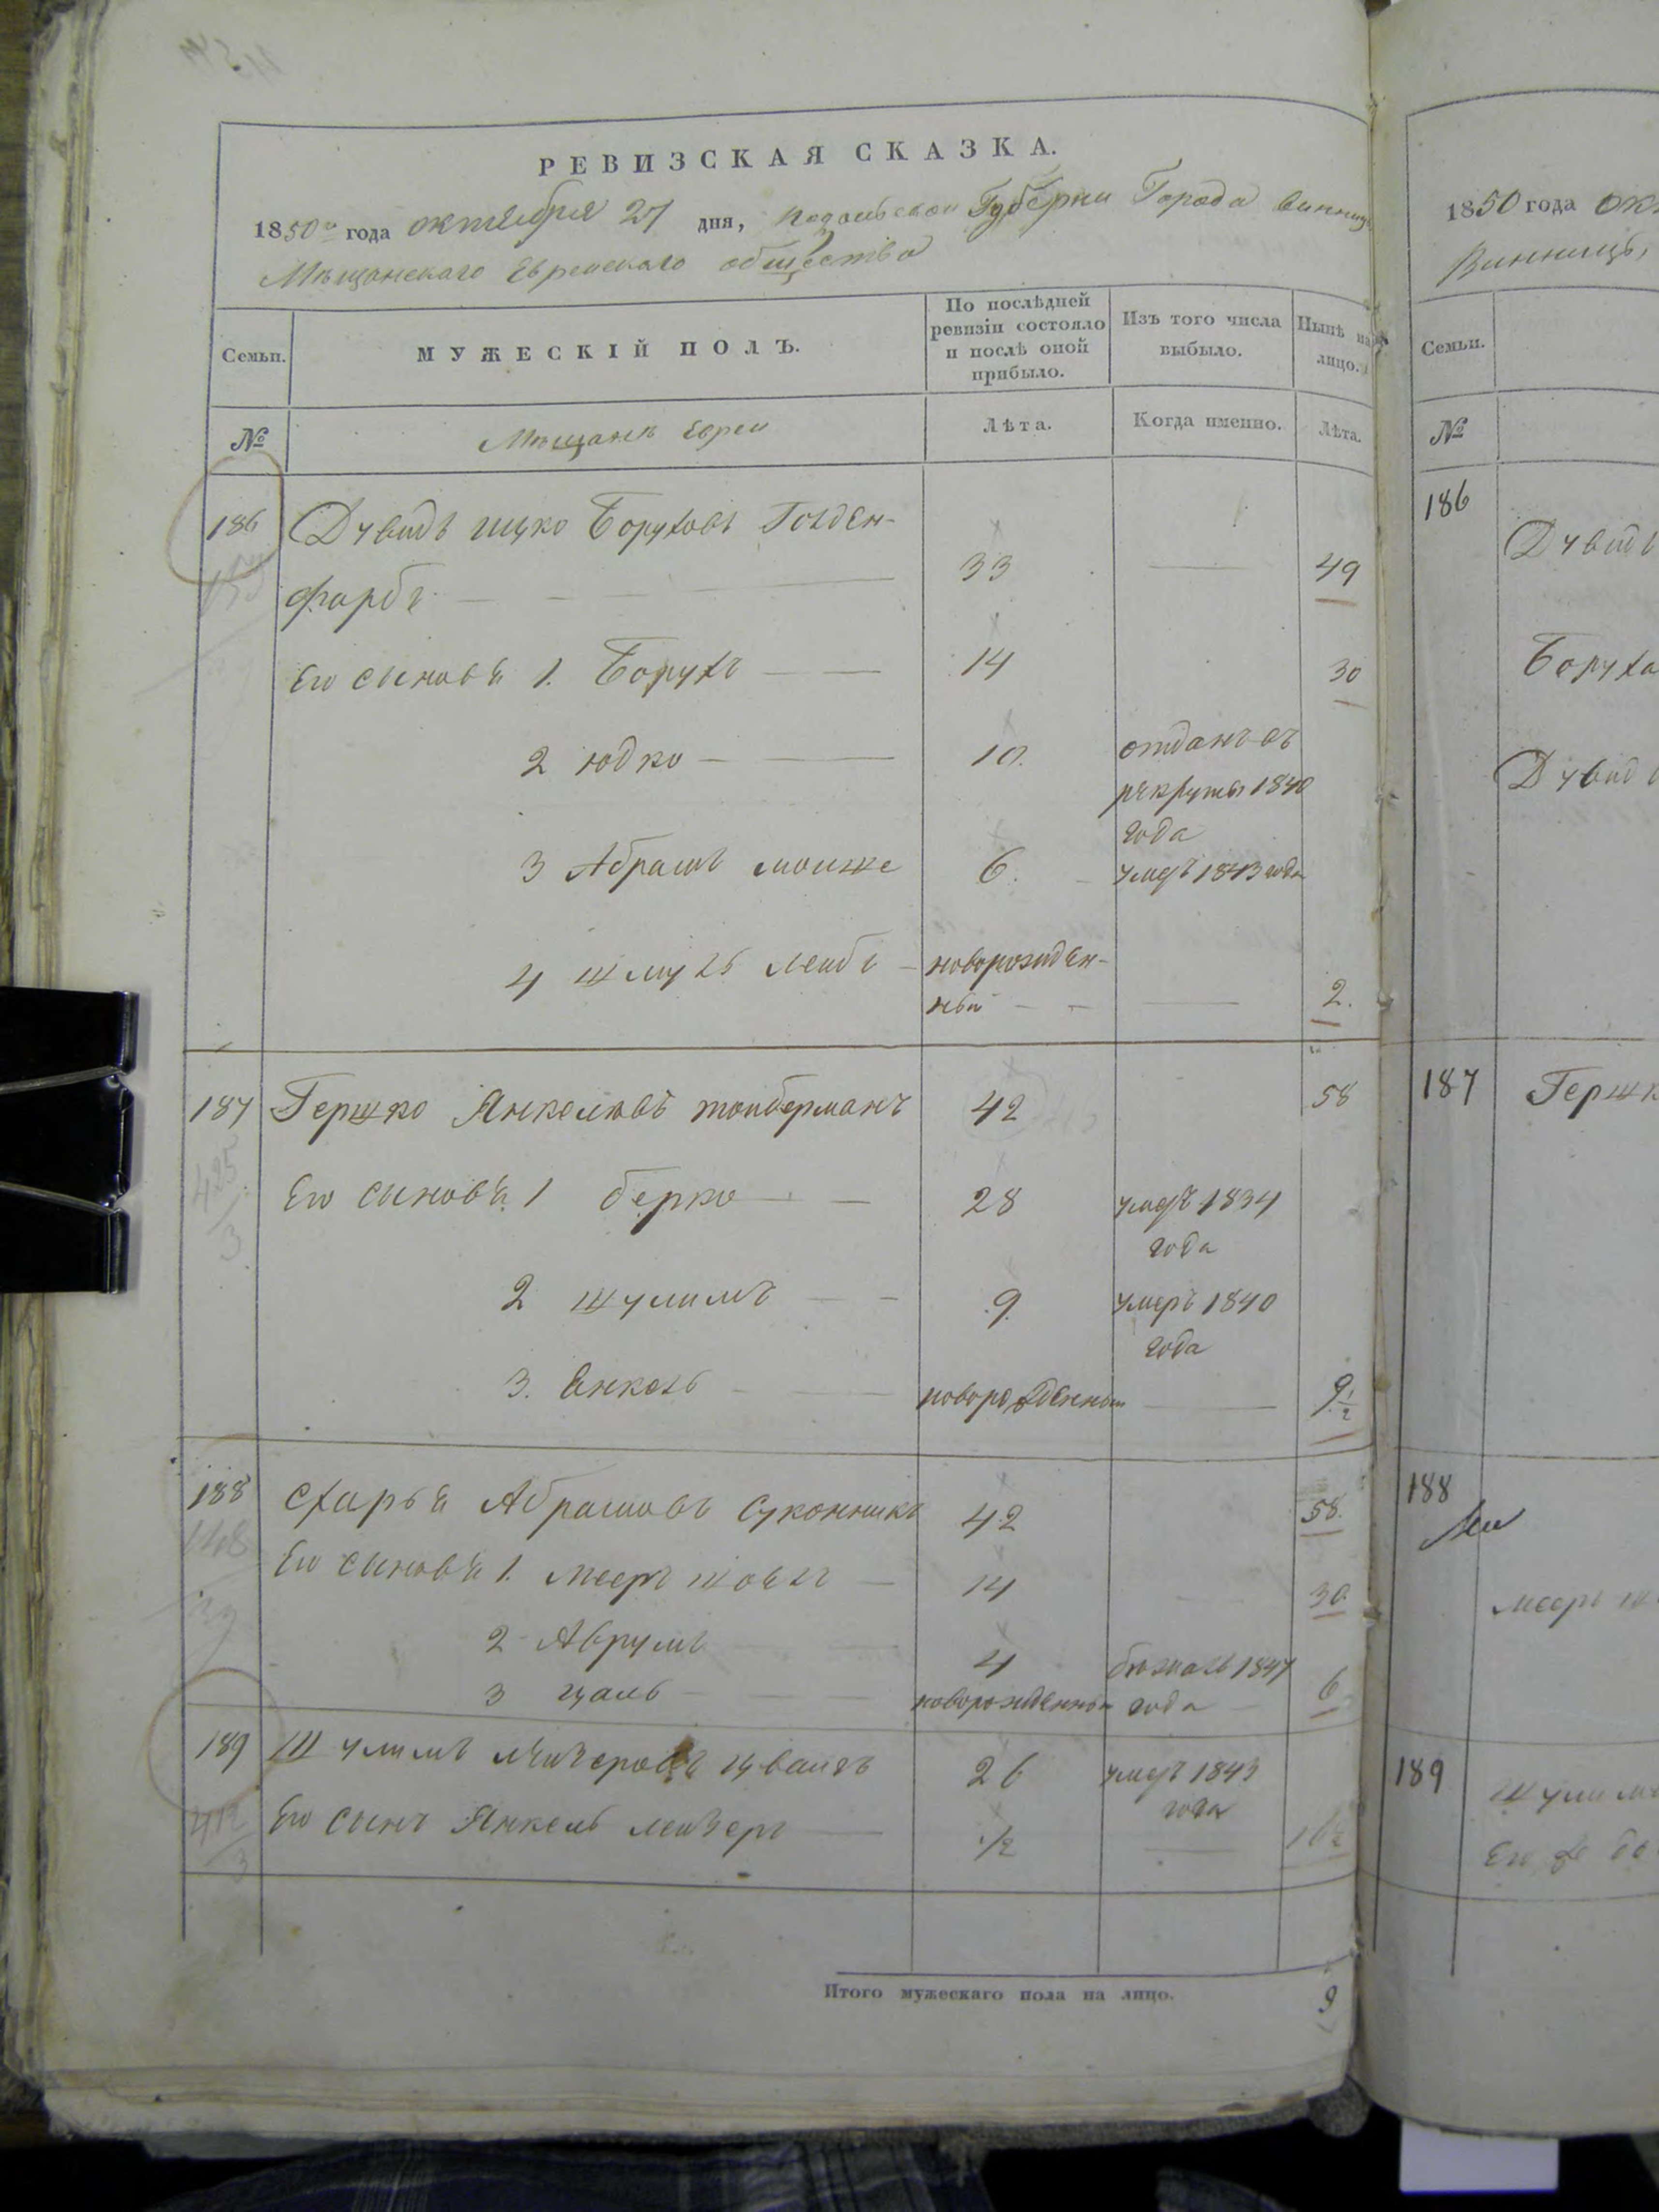 РЕВИЗСКАЯ СКАЗКА.
1850го года октября 27 дня, Подольской Губерни Города Винницы
Мѣщанскаго Еврейскаго общества
Семьи.
МУЖЕСКІЙ ПОЛЪ.
По послѣдней ревизіи состояло и послѣ оной прибыло.
Изъ того числа выбыло.
Нынѣ на лицо.
№
Мѣщане Евреи
Лѣта.
Когда именно.
Лѣта.
186 Дувидъ ицко Боруховъ Голден-
фарбъ 33 49
Его сыновья 1. Борухъ 14 30
2 юдко 10. отданъ въ
рекруты 1840
года
3 Абрамъ мошке 6. умеръ 1843 года
4 шмуль лейбъ новорожден-
ный 2.
187 Гершко Янкелювъ тойберманъ 42 58
425
3
Его сыновья 1 берко 28 умеръ 1834
года
2 шулимъ 9 умеръ 1840
года
3. Янкель новорожденный 9 1/2
188 Схарья Абрамовъ Суконникъ 42 58.
148
Его сыновья 1. мееръ шоель 14 30
2 Аврумъ 4 бѣжалъ 1847
3 цаль новорожденный года 6
189 Шулимъ лейзеровъ цвангъ 26 умеръ 1843
года
412
3
Его сынъ Янкель лейзеръ 1/2 16 1/2
Итого мужескаго пола на лицо. 9
1850 года ок
Винницы,
Семьи.
№
186
Дувидъ
Боруха
Дувид
187 Гершк
188
мееръ ш
189 шулима
Его